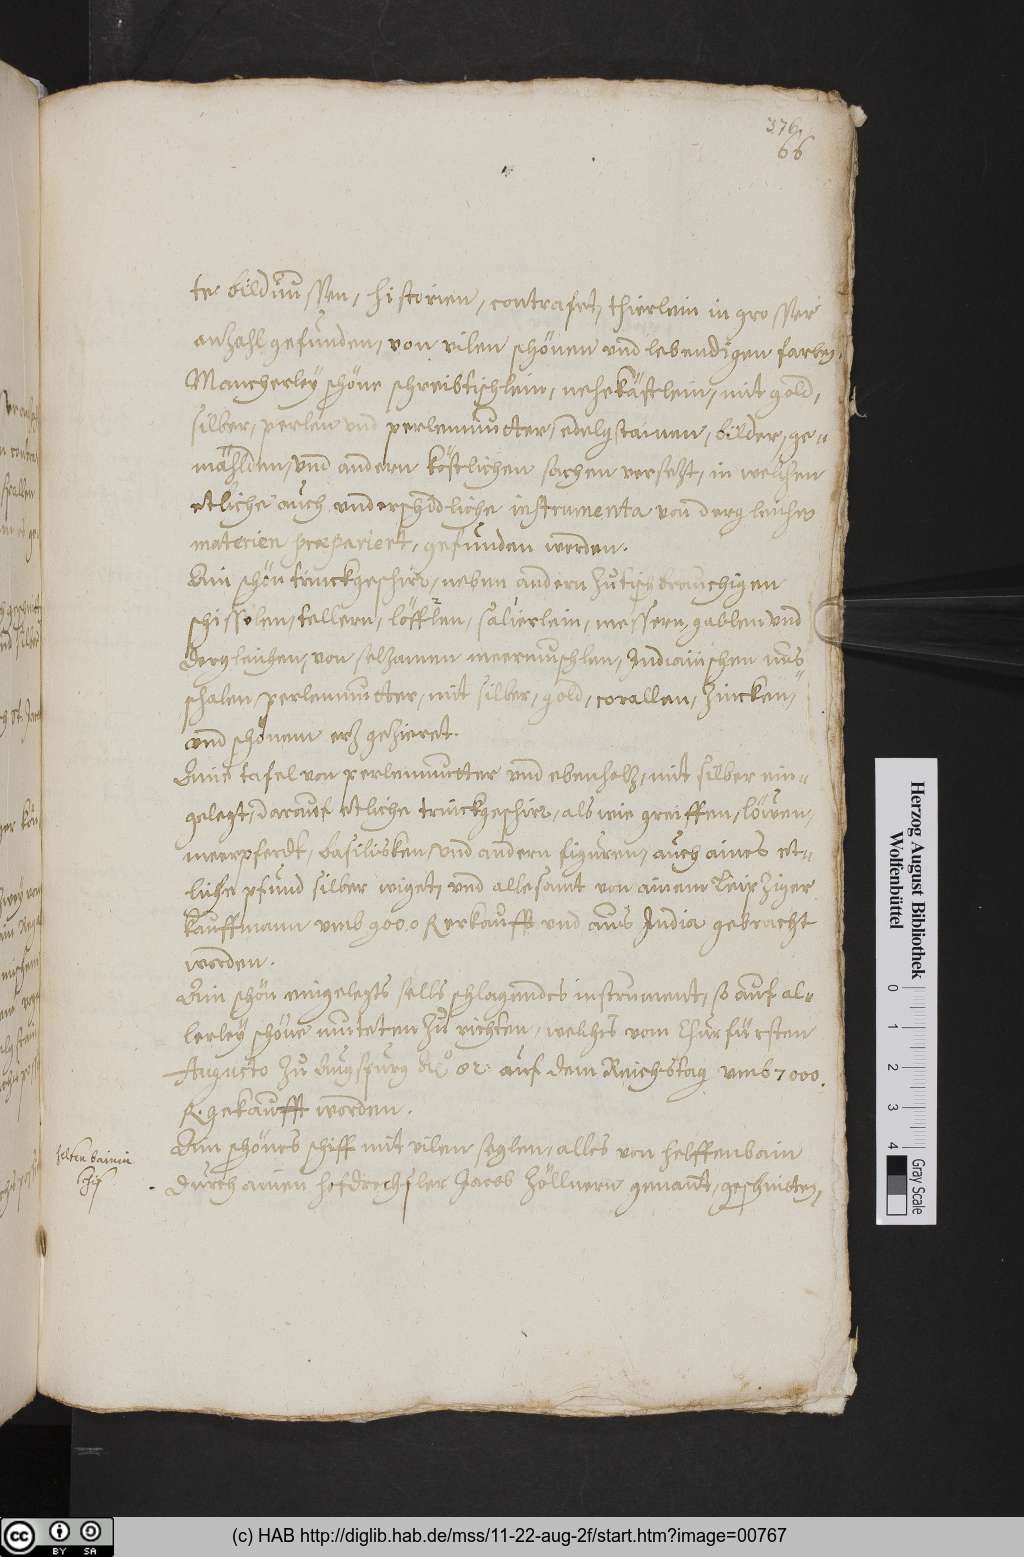 376
66
te bildnussen, historien, contrafet, thierlein in grosser
anzahl gefunden, von vilen schönen vnd lebendigen farben,
Mancherleÿ schöne schreibtischlein, nehekästlein, mit gold,
silber, perlen vnd perlenmutter, edelgstainen, bilder, ge-
mählden, vnd andern köstlichen sachen versetzt, in welchen
etliche auch vnderschidliche instrumenta von dergleichen
materien præpariert, gefunden werden.
Ain schön trinckgeschirr, neben andern zu tisch
schisslen, tellern, löfflen, salierlein, messern, gablen vnd
dergleichen, von selzamen meermuschlen, Indianischen nus
schalen, perlenmutter, mit silber, gold, corallen, zincken,
vnd schönem erz gezieret.
Ein tafel von perlenmutter vnd ebenholz, mit silber ein-
gelegt, darauf etliche trinckgeschirr, als wie greiffen, löwen,
meerpferdt, basilisken, vnd andern figuren, auch aines et-
liche pfund silber wiget, vnd allesamt von ainem Leipziger
kauffmann vmb 9000 R erkaufft vnd aus India gebracht
worden.
Ain schön eingelegts selbs schlagendes instrument, so auf al-
lerleÿ schöne muteten zu richten, welches vom Churfürsten
Augusto zu Augspurg Aō 82. auf dem Reichstag vmb 7000.
R. gekaufft worden.
Ain schönes schiff mit vilen seglen, alles von helffenbain
durch ainen hofdrechsler Jacob Zöllnern genant, geschnitten,
helfenbainin
schif
Herzog August Bibliothek
Wolfenbüttel
0 1 2 3 4
Gray Scale
cc BY SA
(c) HAB http://diglib.hab.de/mss/11-22-aug-2f/start.htm?image=00767